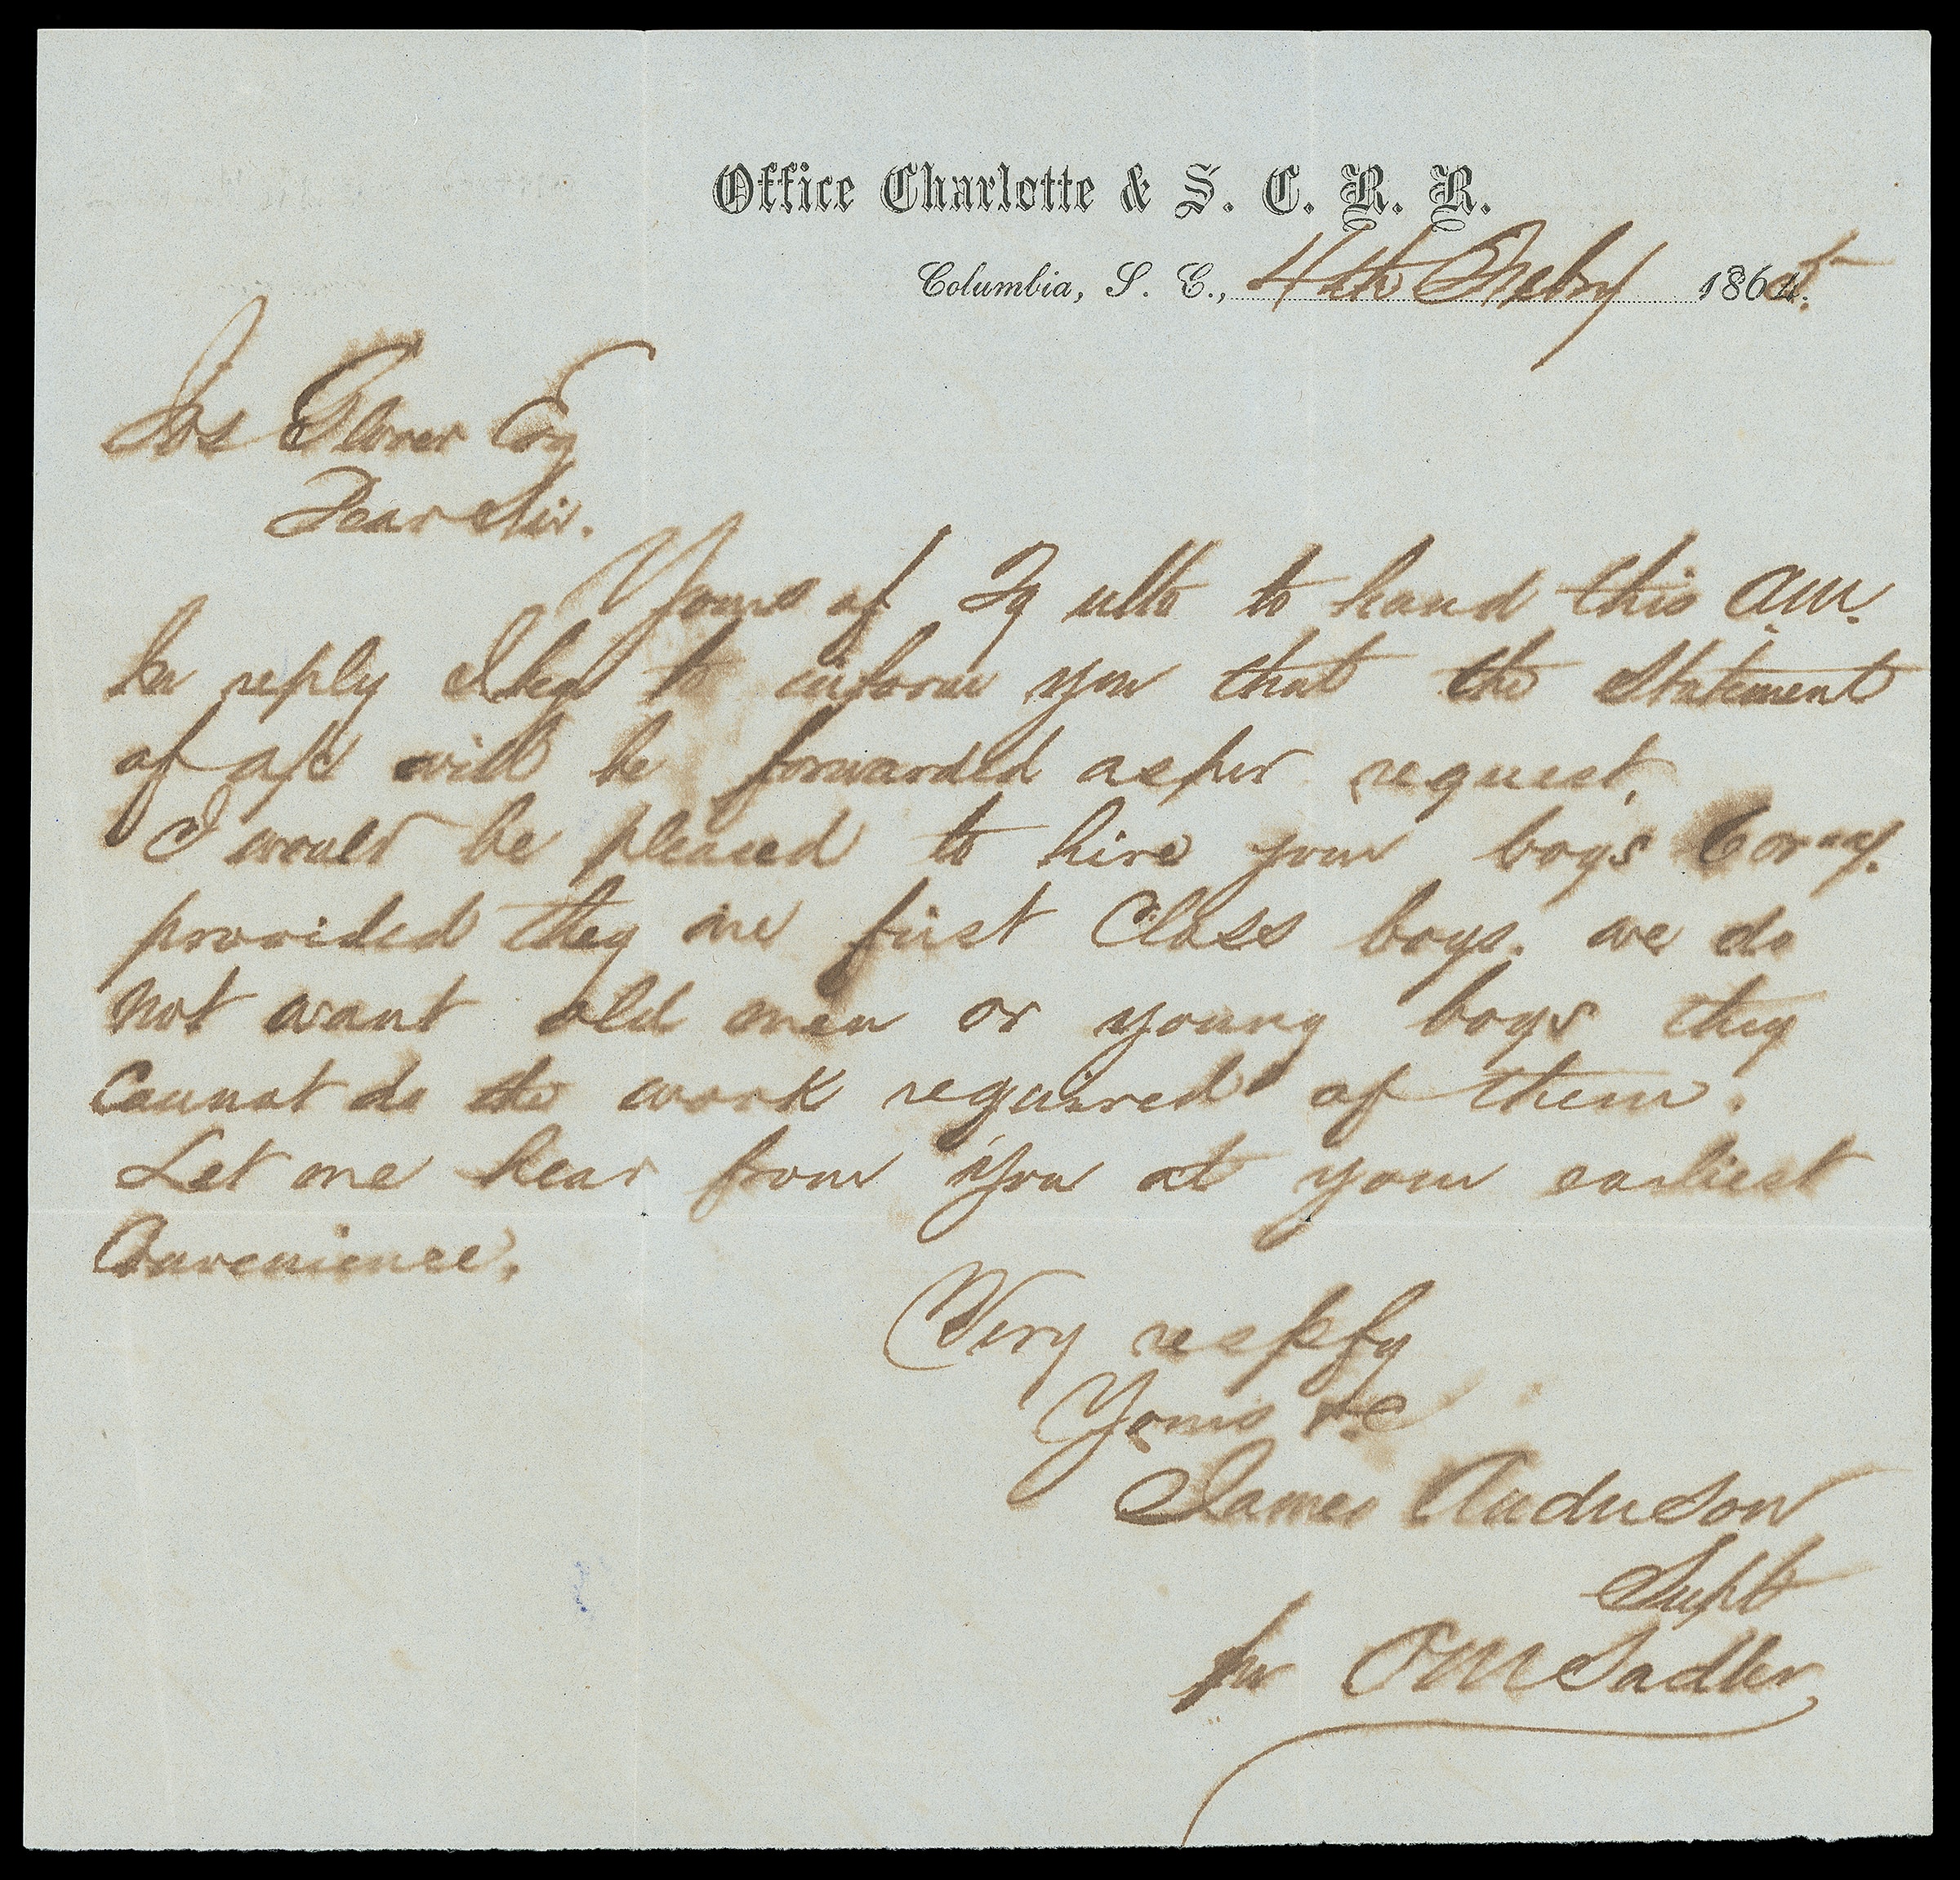 Office Charlotte & S. C. R. R.
Columbia, S. C., 4th Feby 1865.
Jos Glover Esq
Dear Sir.
Yours of 29 ulto to hand this AM.
In reply I beg to inform you that the Statement
of a/c will be forwarded as per request,
I would be pleased to hire your boys 6 or
provided they are first Class boys. we do
not want old men or young boys they
Cannot do the work required of them.
Let me hear from you at your earliest
Convenience.
Very respfy
Yours &c
James Anderson
Supt
per O M Sadler